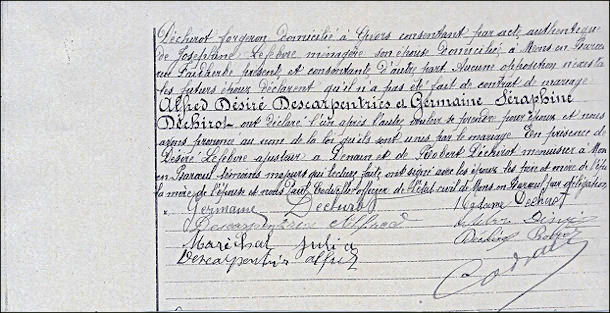 Déchirot forgeron domicilié à Cuers consentant par acte authentique
de Joséphine Lefebvre ménagère son épouse domiciliée à Mons en Barœul
rue Faidherbe présente et consentante d'autre part Aucune opposition n'existe
les futurs époux déclarent qu'il n'a pas été fait de contrat de mariage
Alfred Désiré Descarpentries et Germaine Séraphine
Déchirot ont déclaré l'un après l'autre vouloir se prendre pour époux et nous
avons prononcé au nom de la loi qu'ils sont unis par le mariage En présence de
Désiré Lefebvre ajusteur à Denain et de Robert Déchirot menuisier à Mons
en Barœul témoins majeurs qui lecture faite ont signé avec les époux les père et mère de l'époux
la mère de l'épouse et nous Paul officier de l'état civil de Mons en Barœul par délégation
Germaine Dechirot Madame Dechirot
Descarpentries Alfred Lefebvre Désiré
Maréchal Julia Dechirot Robert
Descarpentries alfred